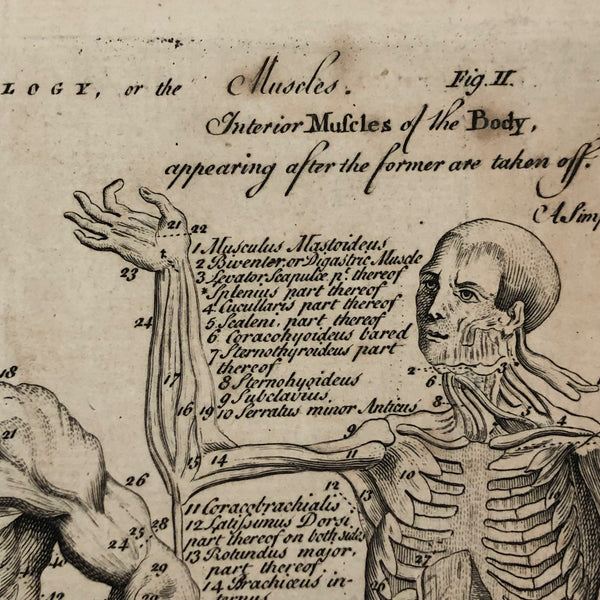 LOGY, or the Muscles. Fig. II.
Interior Muſcles of the Body,
appearing after the former are taken off.
1 Musculus Mastoideus
2 Biventer, or Digastric Muscle
3 Levator Scapulæ pt. thereof
* Splenius part thereof
4 Cucullaris part thereof
5 Scaleni, part thereof
6 Coracohyoideus bared
7 Sternothyroideus part
thereof
8 Sternohyoideus
9 Subclavius,
10 Serratus minor Anticus
11 Coracobrachialis
12 Latiſsimus Dorsi
part thereof on both sides
13 Rotundus major,
part thereof.
14 Brachiæus in-
ternus
21
22
23
24
17
16
19
15
14
9
11
12
13
10
2
6
8
5
3
4
27
26
18
21
26
25
28
24
29